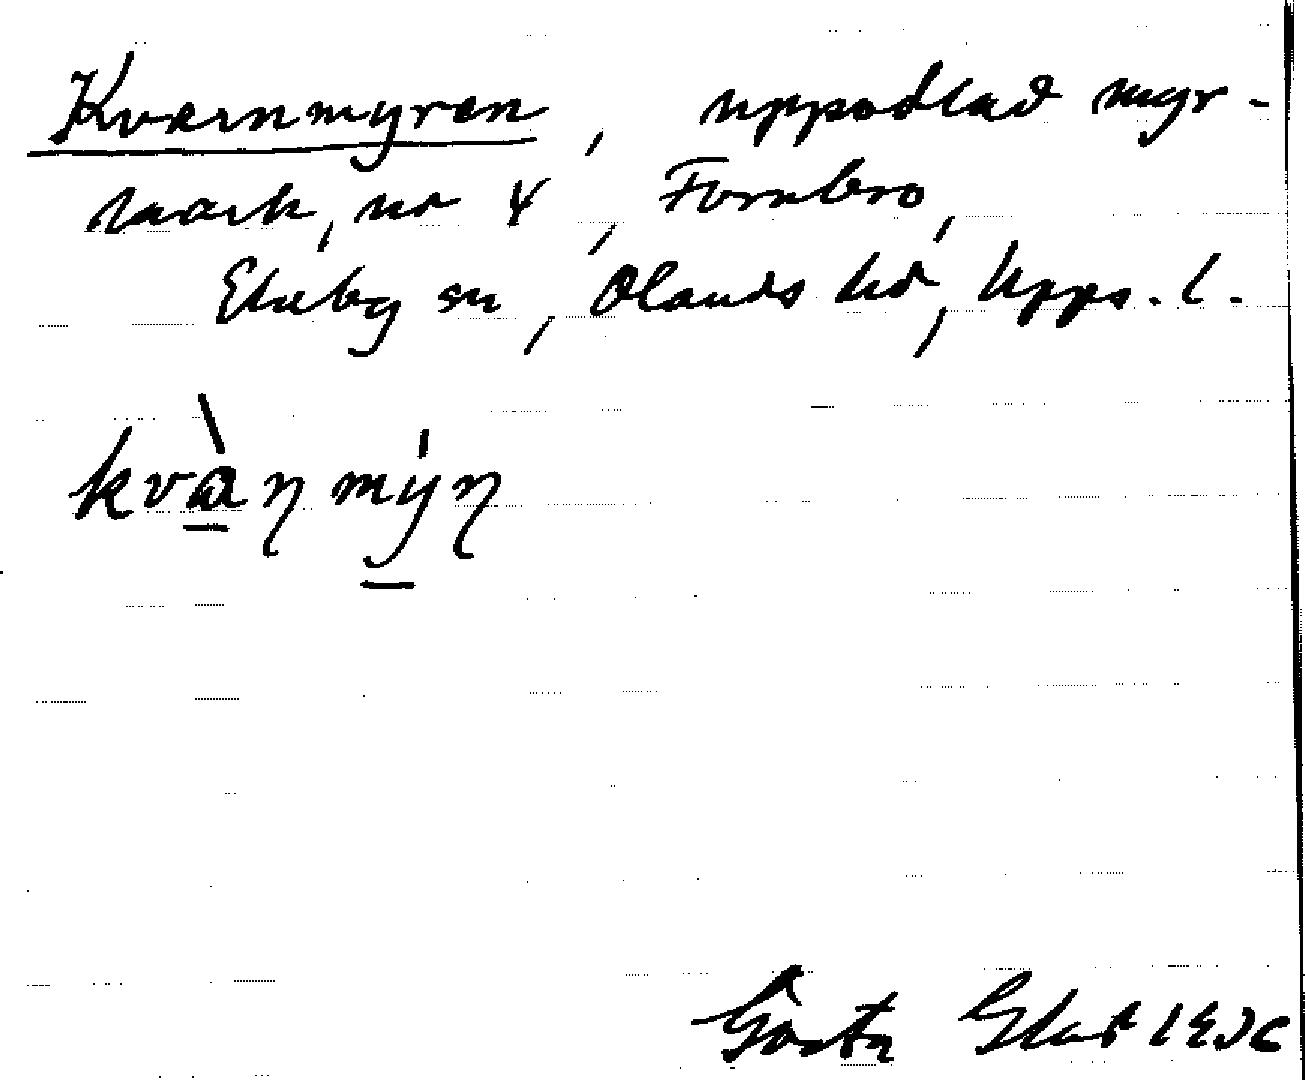 Kvarnmyren, uppodlad myr-
mark, nr 4, Fornbro,
Ekeby sn, Olands hd, Upps. l.
kvàηmýη
Gösta Ekd